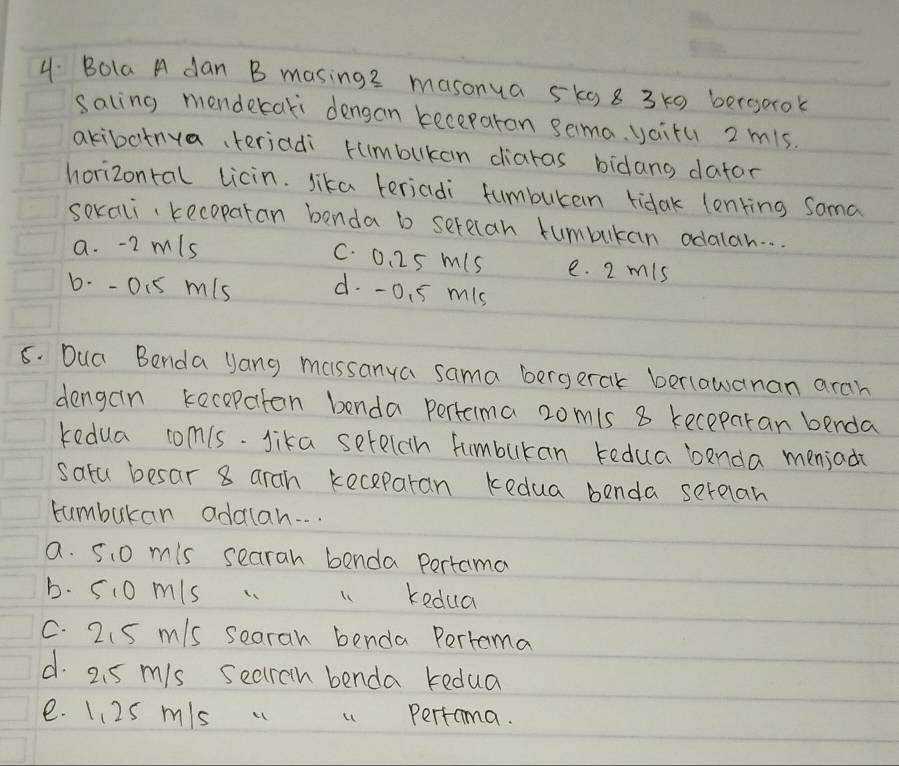 4. Bola A dan B masing2 masanya 5 kg & 3 kg bergerak
saling mendekati dengan kecepatan sama. yaitu 2 m/s.
akibatnya, terjadi tumbukan diatas bidang datar
horizontal licin. Jika terjadi tumbukan tidak lenting sama
sekali, kecepatan benda b setelah tumbukan adalah...
a. -2 m/s c. 0,25 m/s e. 2 m/s
b. -0,5 m/s d. -0,5 m/s
5. Dua Benda yang massanya sama bergerak berlawanan arah
dengan kecepatan benda pertama 20 m/s & kecepatan benda
kedua 10 m/s. Jika setelah tumbukan kedua benda menjadi
satu besar & arah kecepatan kedua benda setelah
tumbukan adalah...
a. 5,0 m/s searah benda Pertama
b. 5,0 m/s " " kedua
c. 2,5 m/s searah benda Pertama
d. 2,5 m/s searah benda kedua
e. 1,25 m/s " " Pertama.